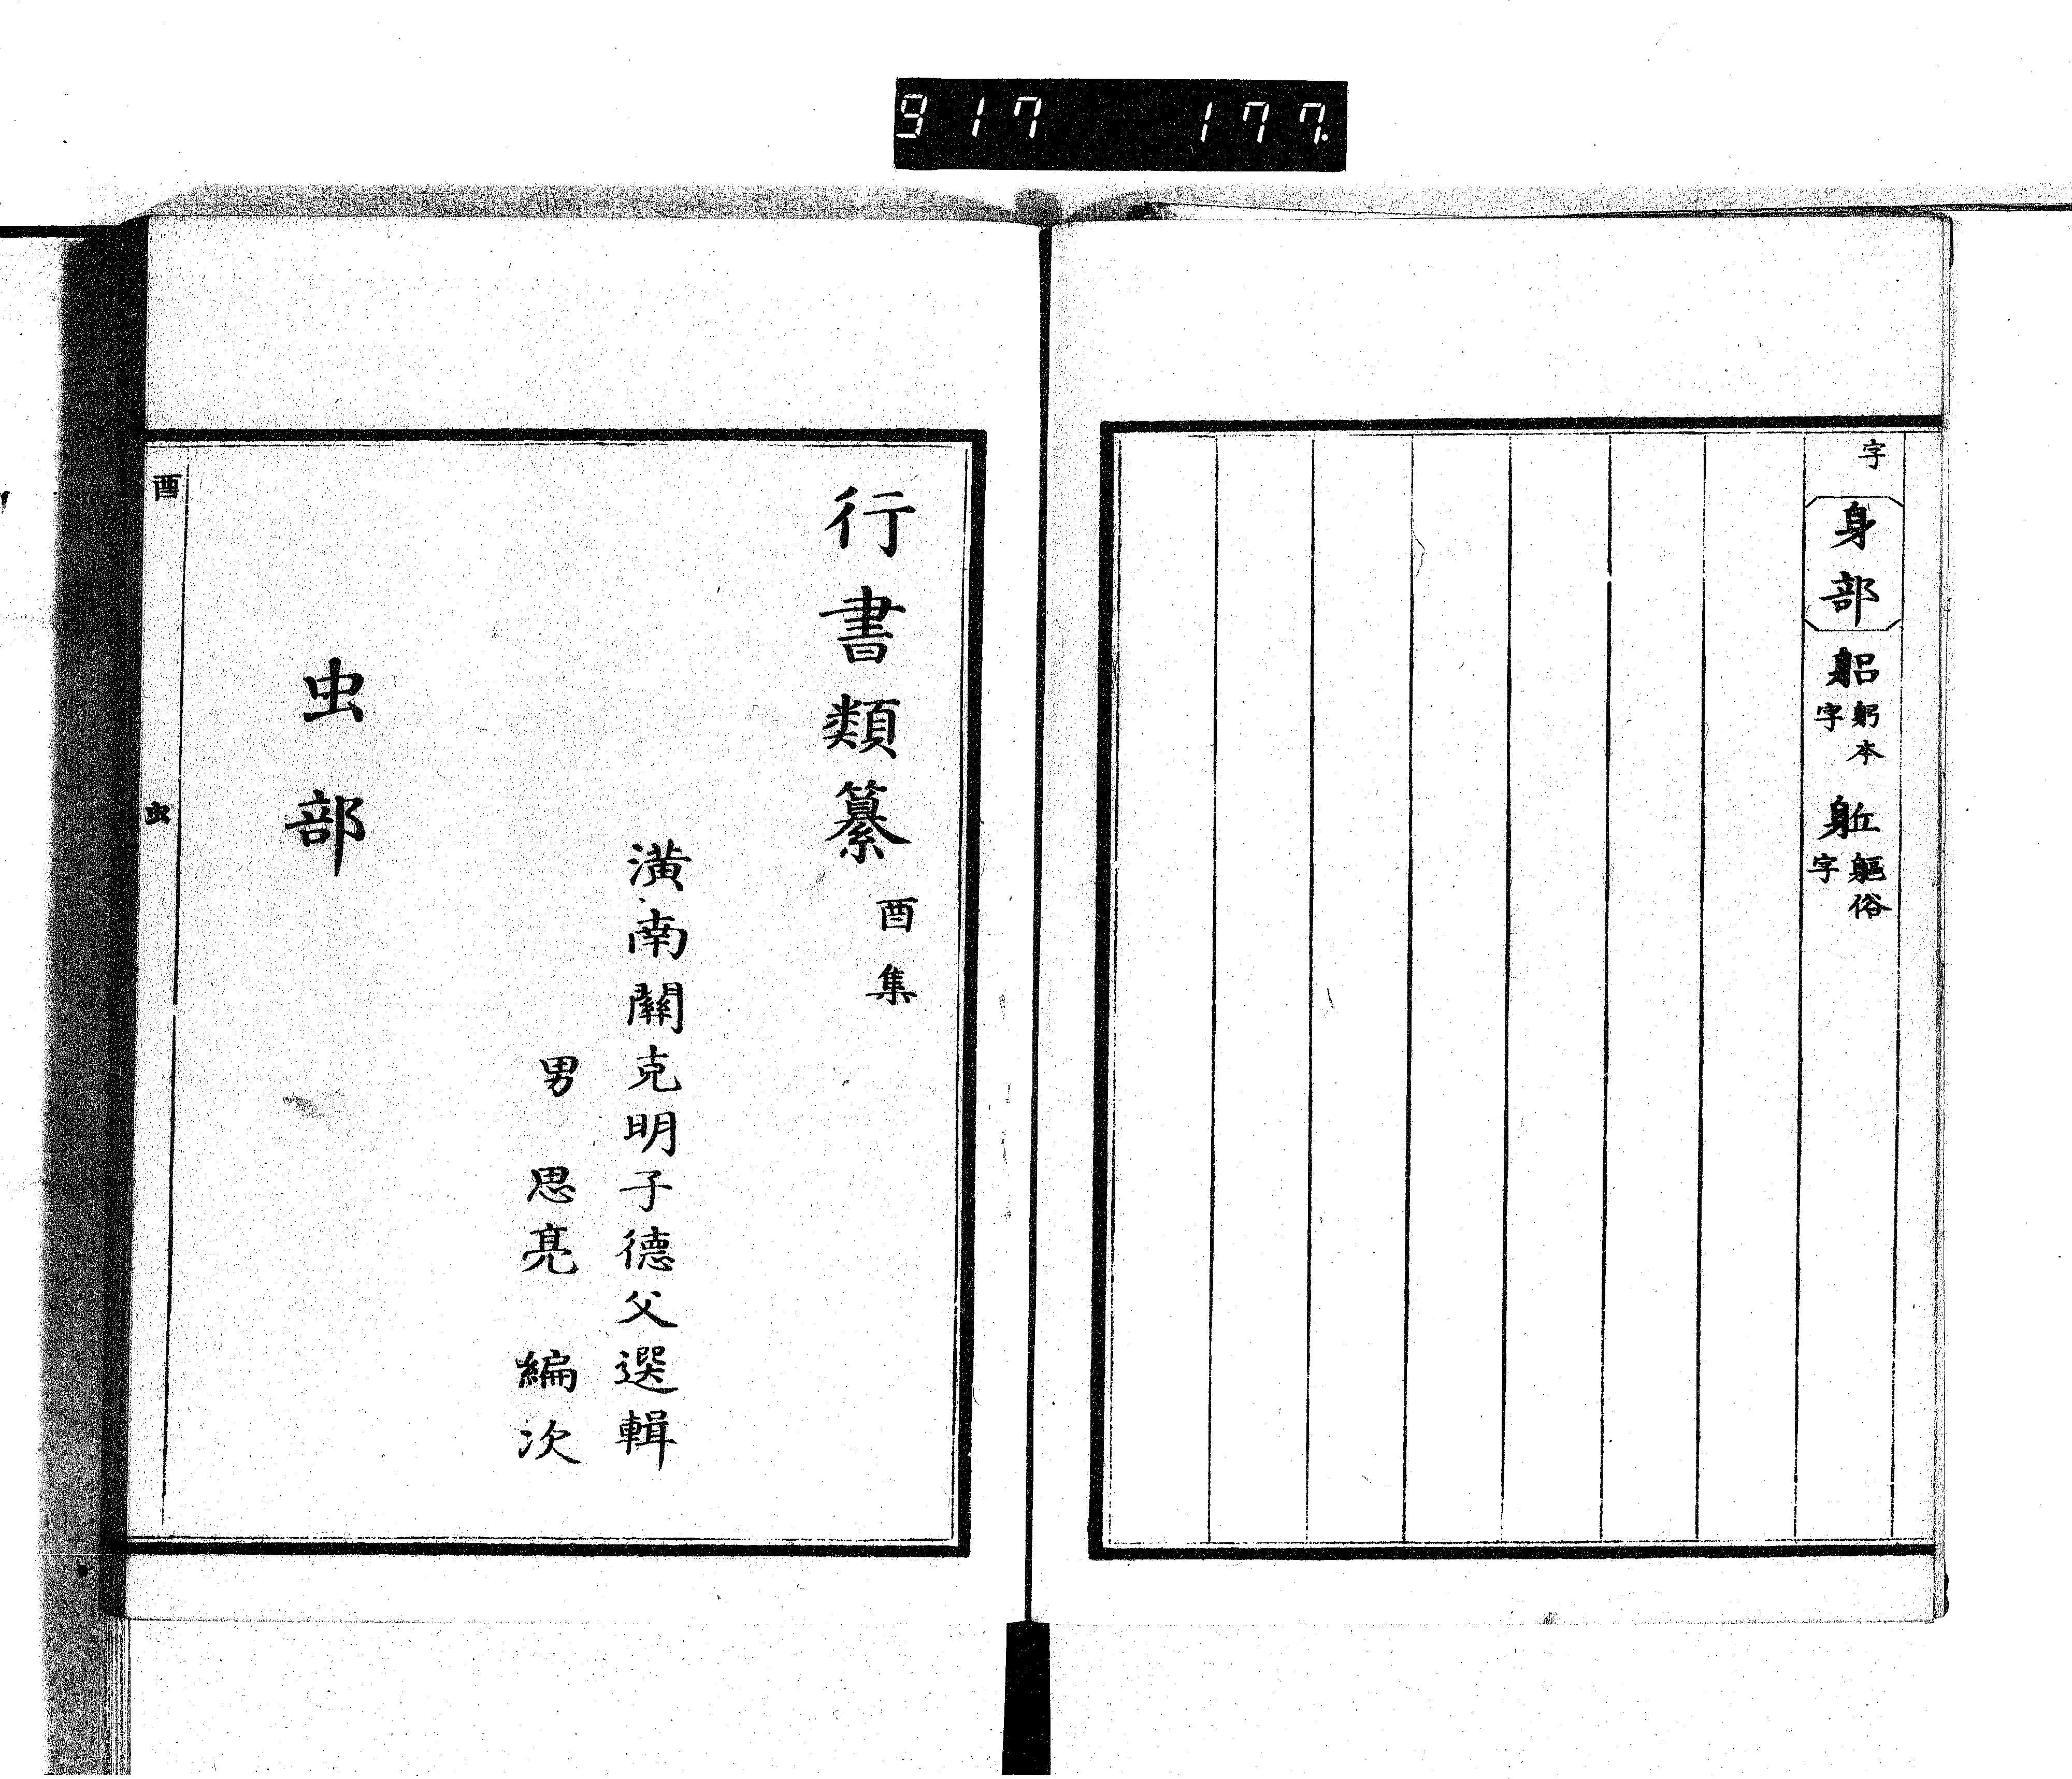 917 177.
字
身部 躳 躬本字 𨈮 軀俗字
行書類纂 酉集
潢南關克明子德父選輯
男 思亮 編次
虫部
酉 虫